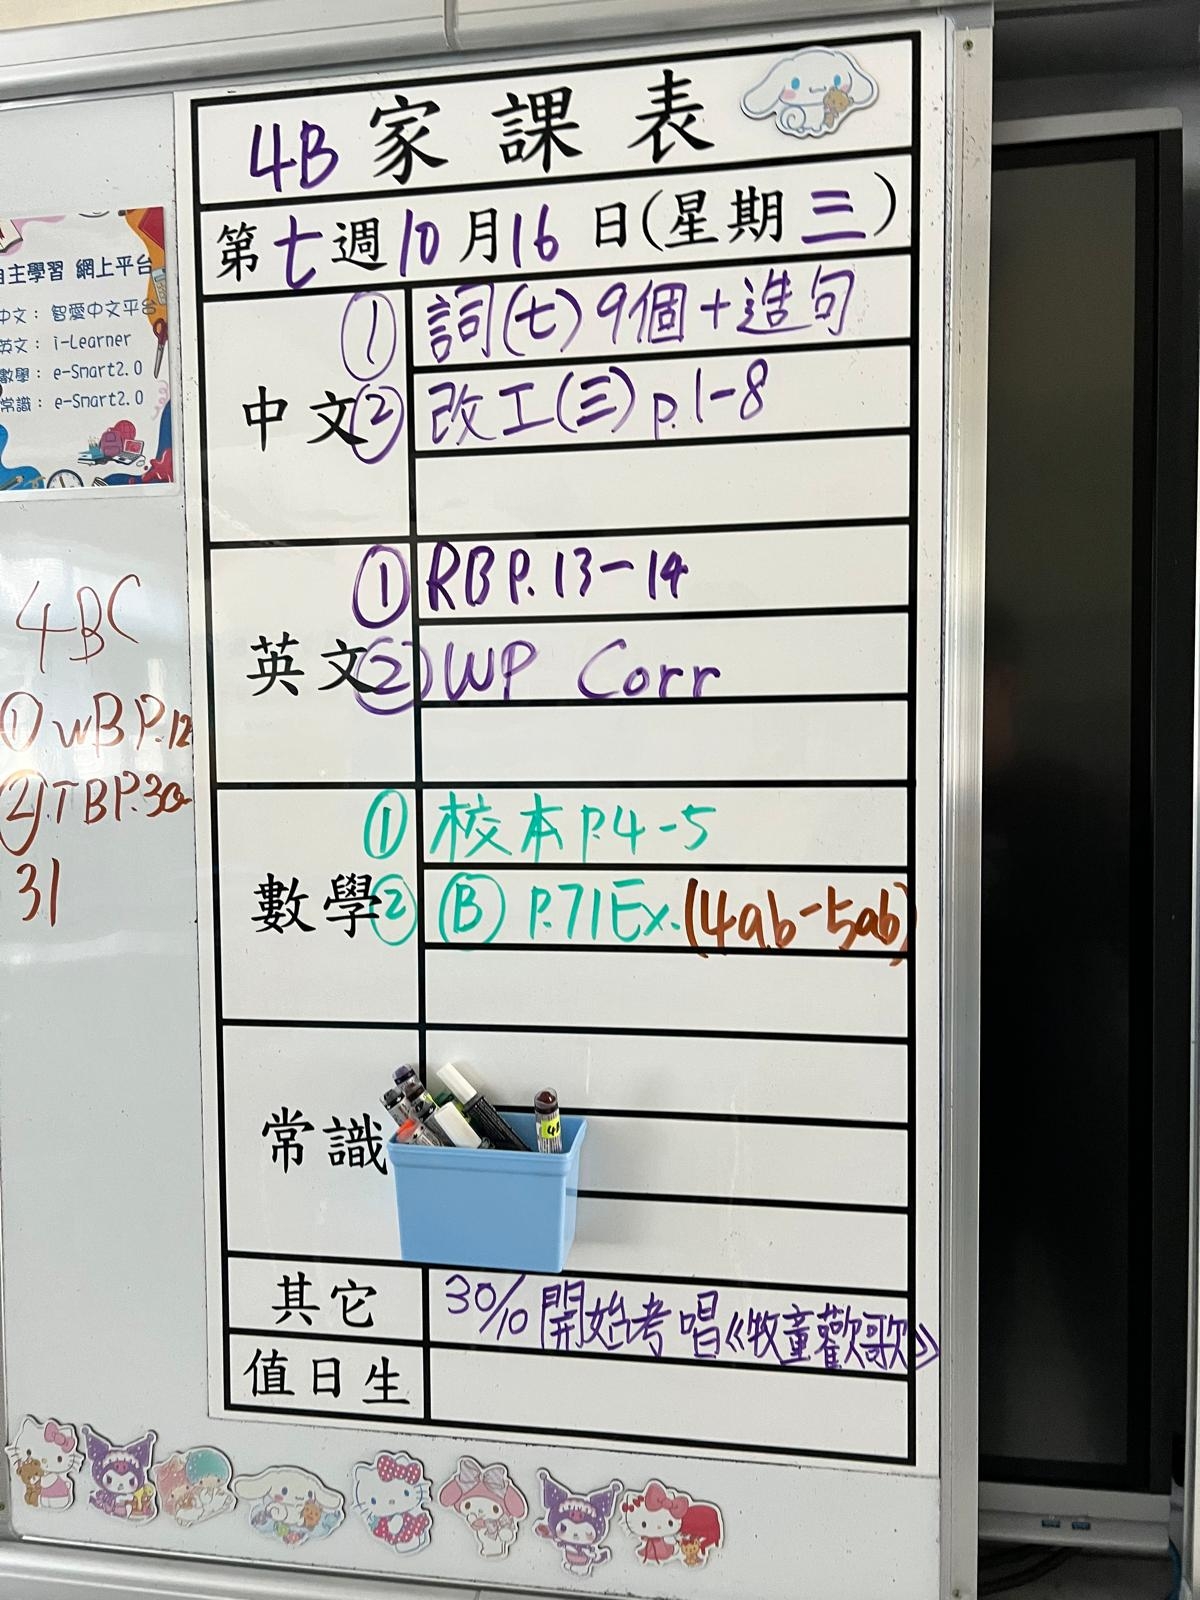 4B 家課表
第七週10月16日(星期三)
中文
① 詞(七)9個+造句
② 改工(三)p.1-8
英文
① RB P.13-14
② WP Corr
數學
① 校本P.4-5
② Ⓑ P.71Ex.(4ab-5ab)
常識
其它
30/10開始考唱《牧童歡歌》
值日生
自主學習 網上平台
中文：智愛中文平台
英文：i-Learner
數學：e-Smart2.0
常識：e-Smart2.0
4BC
① WB P.12
② TB P.30-
31